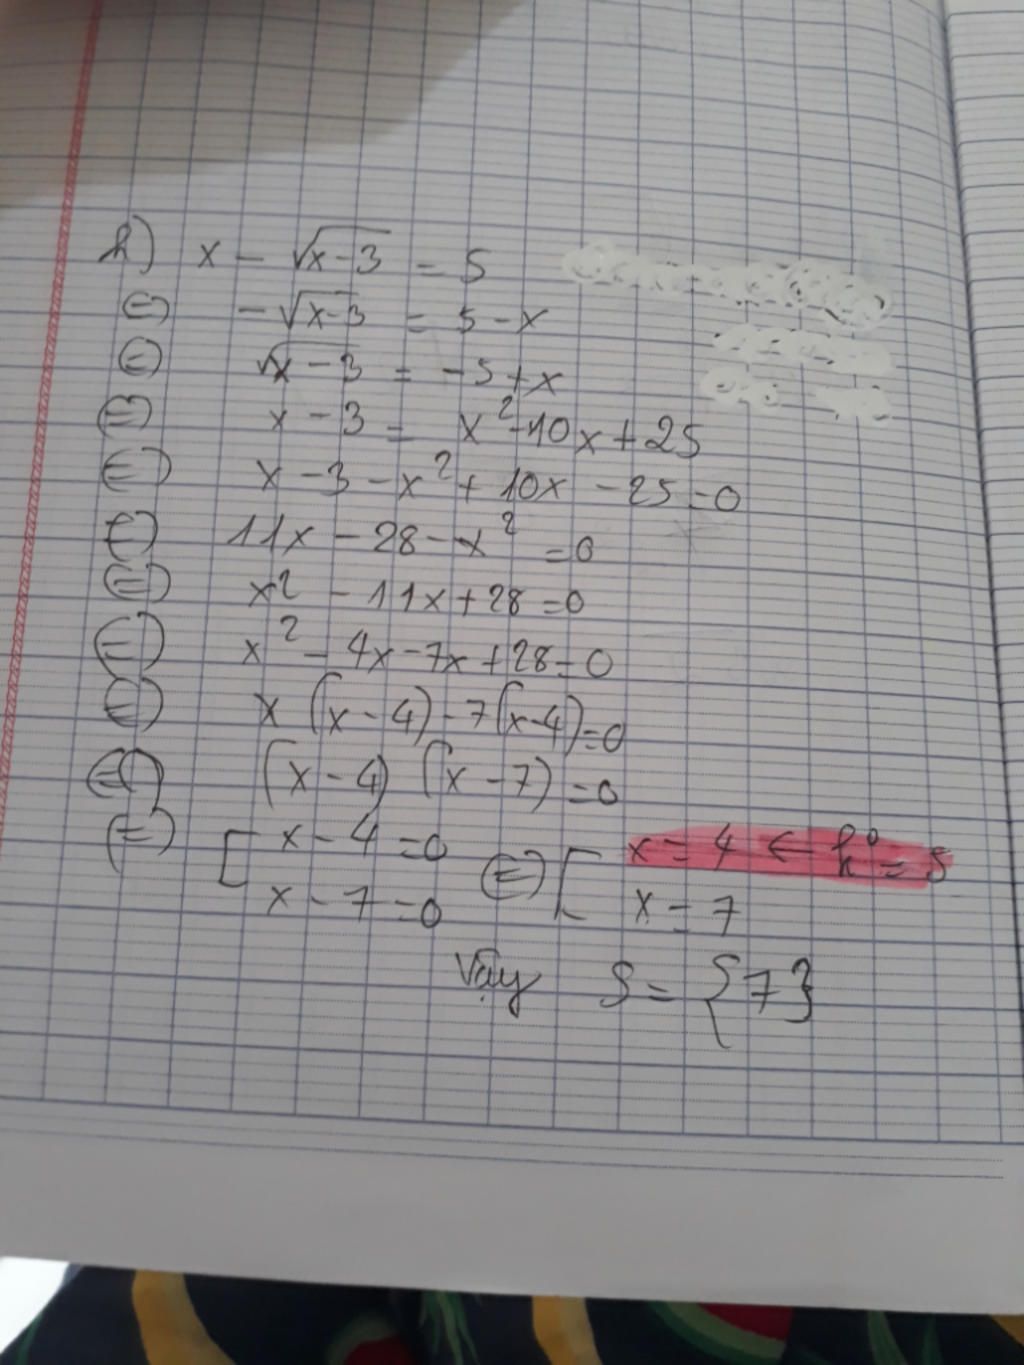 h) x - √(x-3) = 5
⇔ -√(x-3) = 5 - x
⇔ √(x-3) = -5 + x
⇔ x - 3 = x² - 10x + 25
⇔ x - 3 - x² + 10x - 25 = 0
⇔ 11x - 28 - x² = 0
⇔ x² - 11x + 28 = 0
⇔ x² - 4x - 7x + 28 = 0
⇔ x (x - 4) - 7 (x - 4) = 0
⇔ (x - 4) (x - 7) = 0
⇔ [ x - 4 = 0 ⇔ [ x = 4 ← k° = 5
x - 7 = 0 x = 7
Vậy S = {7}